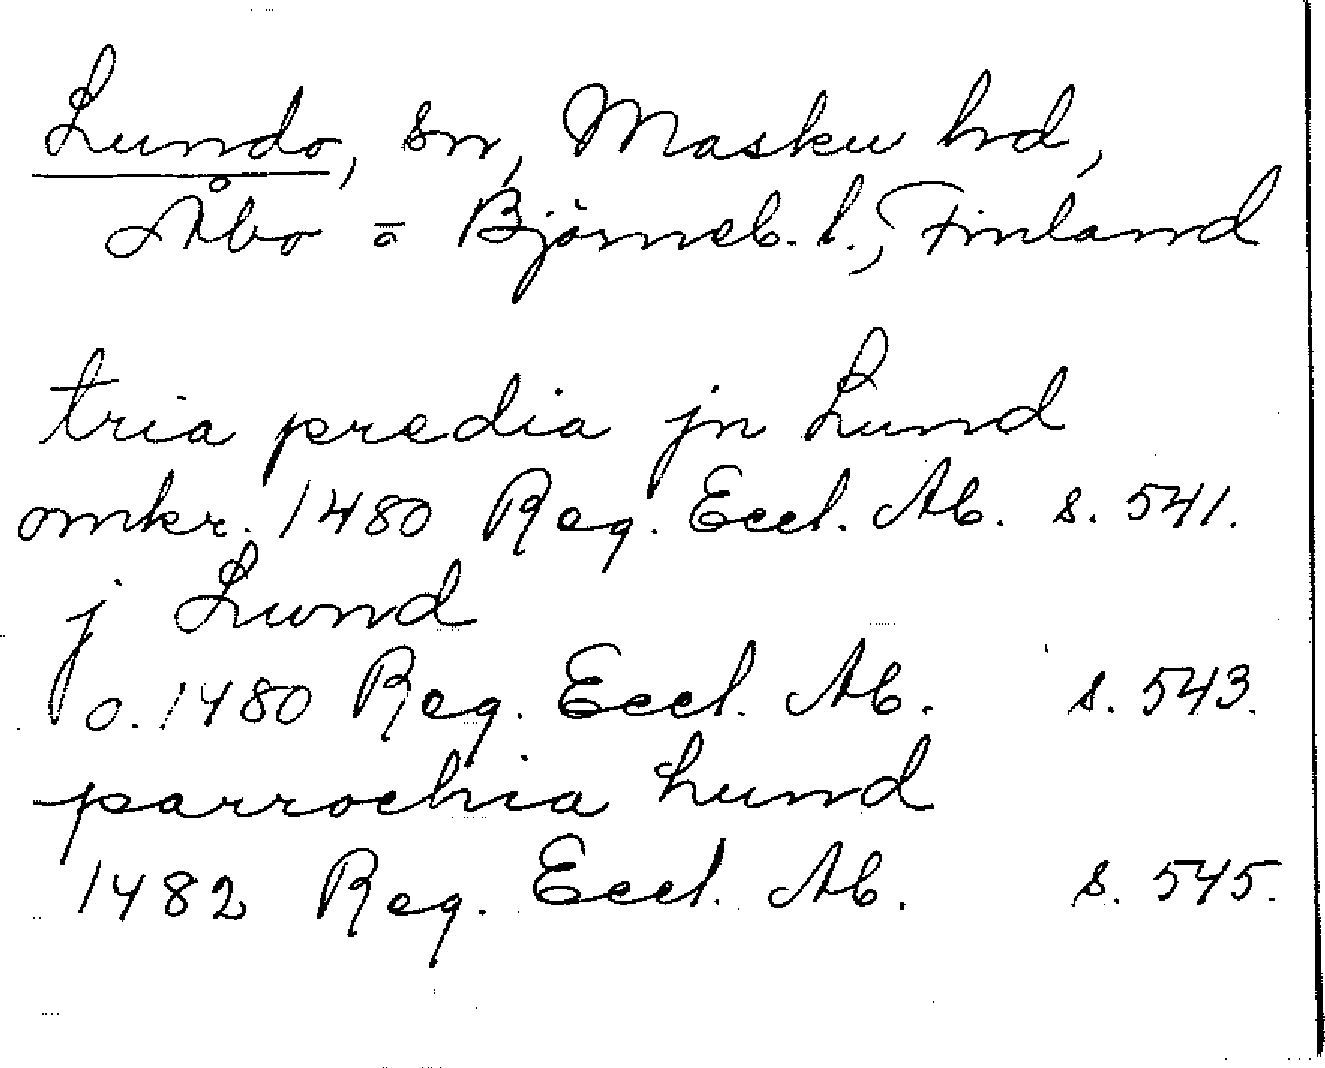 Lundo, sn, Masku hd,
Åbo o Björneb. l., Finland
tria predia jn Lund
omkr. 1480 Reg. Eccl. Ab. s. 541.
j Lund
o. 1480 Reg. Eccl. Ab. s. 543.
parrochia Lund
1482 Reg. Eccl. Ab. s. 545.